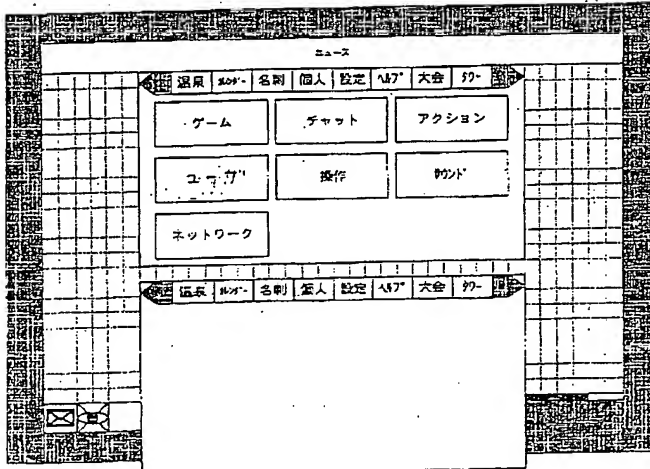 ニュース
温泉 ｶﾚﾝﾀﾞｰ 名刺 個人 設定 ﾍﾙﾌﾟ 大会 ﾀﾜｰ
ゲーム チャット アクション
ユーザ 操作 ｻｳﾝﾄﾞ
ネットワーク
温泉 ｶﾚﾝﾀﾞｰ 名刺 個人 設定 ﾍﾙﾌﾟ 大会 ﾀﾜｰ